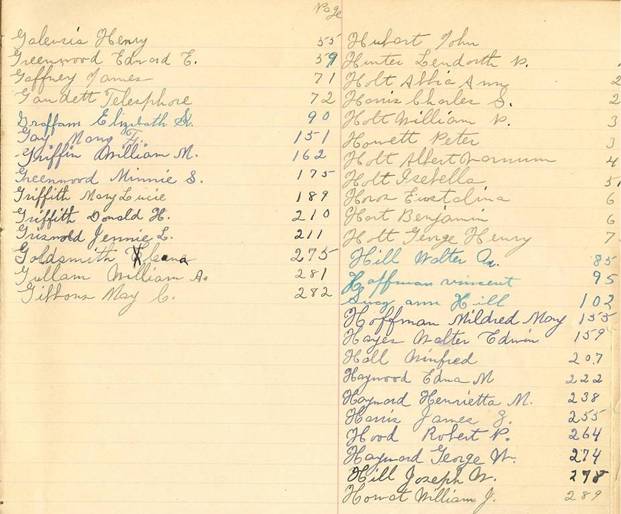 Page
Galeucia Henry 55
Greenwood Edward E. 59
Gaffney James 71
Gaudett Telesphore 72
Graffam Elizabeth S. 90
Gay Mary F. 151
Griffin William M. 162
Greenwood Minnie S. 175
Griffith Mary Lucie 189
Griffith Donald H. 210
Griswold Jennie L. 211
Goldsmith 275
Gullam William A. 281
Gibbons May C. 282
Hubart John
Hunter Lendorth P.
Holt Abbie Ann 2
Harris Charles S. 2
Holt William P. 3
Howett Peter 3
Holt Albert Varnum 4
Holt Isabella 5
Horn 6
Hart Benjamin 6
Holt George Henry 7
Hill Walter A. 85
Hoffman vincent 95
Susy ann Hill 102
Hoffman Mildred May 155
Hayes Walter Edwin 159
Hall Winfred 207
Haywood Edna M 222
Hayward Henrietta M. 238
Harris James J. 255
Hood Robert P. 264
Hayward George W. 274
Hill Joseph W. 278
Howat William J. 289